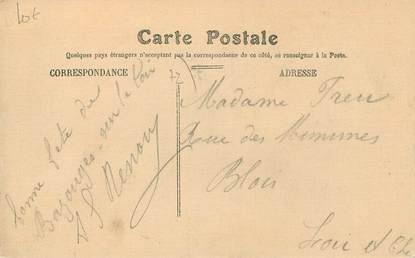 Lot
Carte Postale
Quelques pays étrangers n'acceptant pas la correspondance de ce côté, se renseigner à la Poste.
CORRESPONDANCE
ADRESSE
bonne fête de
Bazouges-sur le Loir
Madame
Rue des Minimes
Blois
Loir et Ch